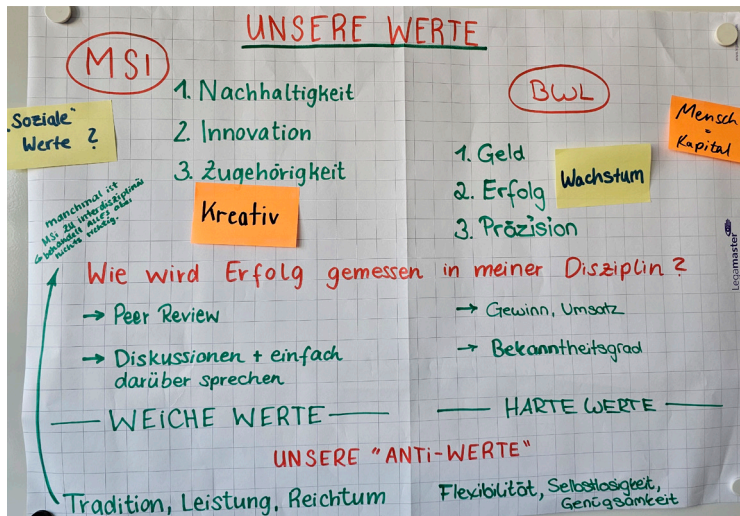 UNSERE WERTE
MSI
1. Nachhaltigkeit
2. Innovation
3. Zugehörigkeit
"Soziale"
Werte ?
Kreativ
manchmal ist
MSI zu interdisziplinär
behandelt ALLES aber
nichts richtig.
BWL
1. Geld
2. Erfolg
3. Präzision
Wachstum
Mensch
=
Kapital
Legamaster
Wie wird Erfolg gemessen in meiner Disziplin ?
→ Peer Review
→ Diskussionen + einfach
darüber sprechen
→ Gewinn, Umsatz
→ Bekanntheitsgrad
WEICHE WERTE
HARTE WERTE
UNSERE "ANTI-WERTE"
Tradition, Leistung, Reichtum
Flexibilität, Selbstlosigkeit,
Genügsamkeit